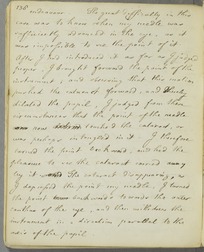 130
endeavour. The great difficulty in this
case was to know when my needle was
sufficiently in the eye, as it
was impossible to see the point of it
After I had introduced it as far as I judged
proper, I brought forward the point of the
instrument, and observing that this motion
pushed the cataract forward, and thereby
dilated the pupil, I judged from these
circumstances that the point of the needle
was now behind the cataract, or
was perhaps entangled in it. I therefore
turned the point backward, and had the
pleasure to see the cataract carried away
by it. The cataract disappearing as
I depressed the point of my needle, I turned
the point backwards towards the outer
of the eye, and then withdrew the
instrument in a direction parallel to the
axis of the pupil.